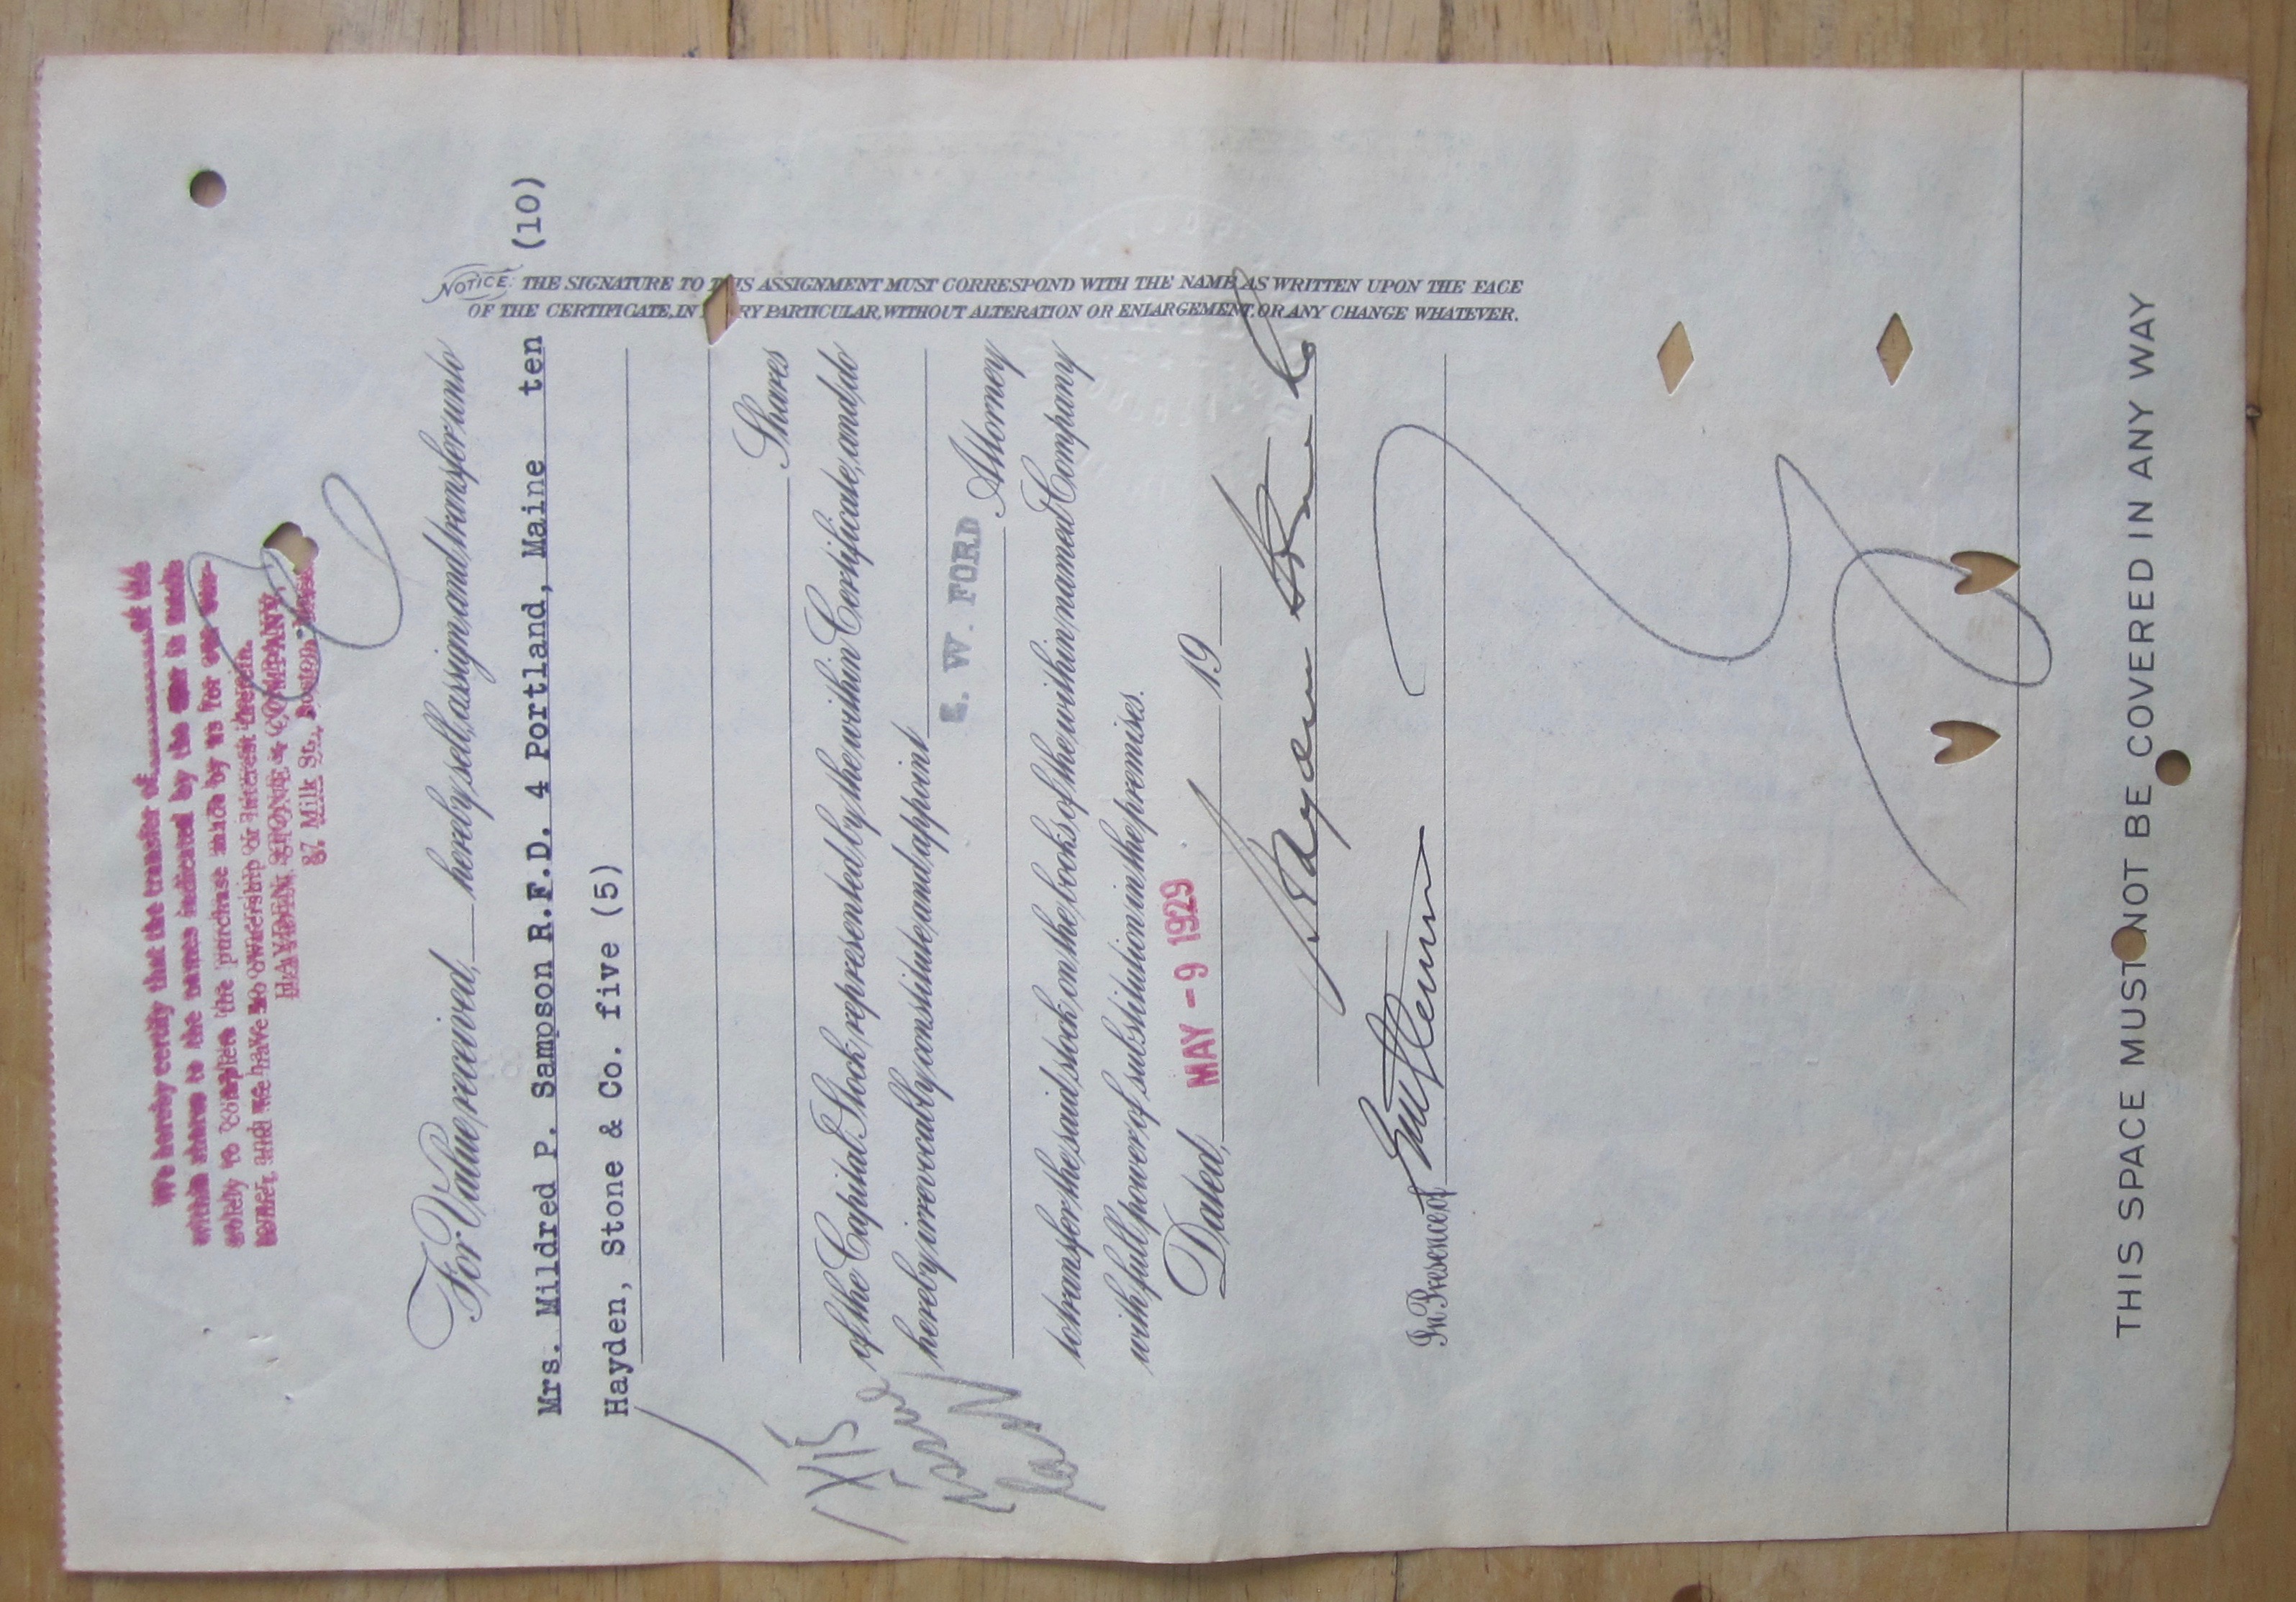 We hereby certify that the transfer of.................of the
within shares to the names indicated by the is made
solely to complete the purchase made by us for our cus-
tomer, and we have no ownership or interest therein.
HAYDEN, STONE & COMPANY,
87 Milk St., Boston, Mass.
For Value received, hereby sell, assign and transfer unto
Mrs. Mildred P. Sampson R.F.D. 4 Portland, Maine ten (10)
Hayden, Stone & Co. five (5)
Shares
of the Capital Stock represented by the within Certificate, and do
hereby irrevocably constitute and appoint
E. W. FORD Attorney
to transfer the said stock on the books of the within named Company
with full power of substitution in the premises.
Dated, MAY - 9 1929 19
Hayden Stone & Co
In Presence of
NOTICE: THE SIGNATURE TO THIS ASSIGNMENT MUST CORRESPOND WITH THE NAME AS WRITTEN UPON THE FACE
OF THE CERTIFICATE, IN RY PARTICULAR, WITHOUT ALTERATION OR ENLARGEMENT, OR ANY CHANGE WHATEVER.
THIS SPACE MUST NOT BE COVERED IN ANY WAY